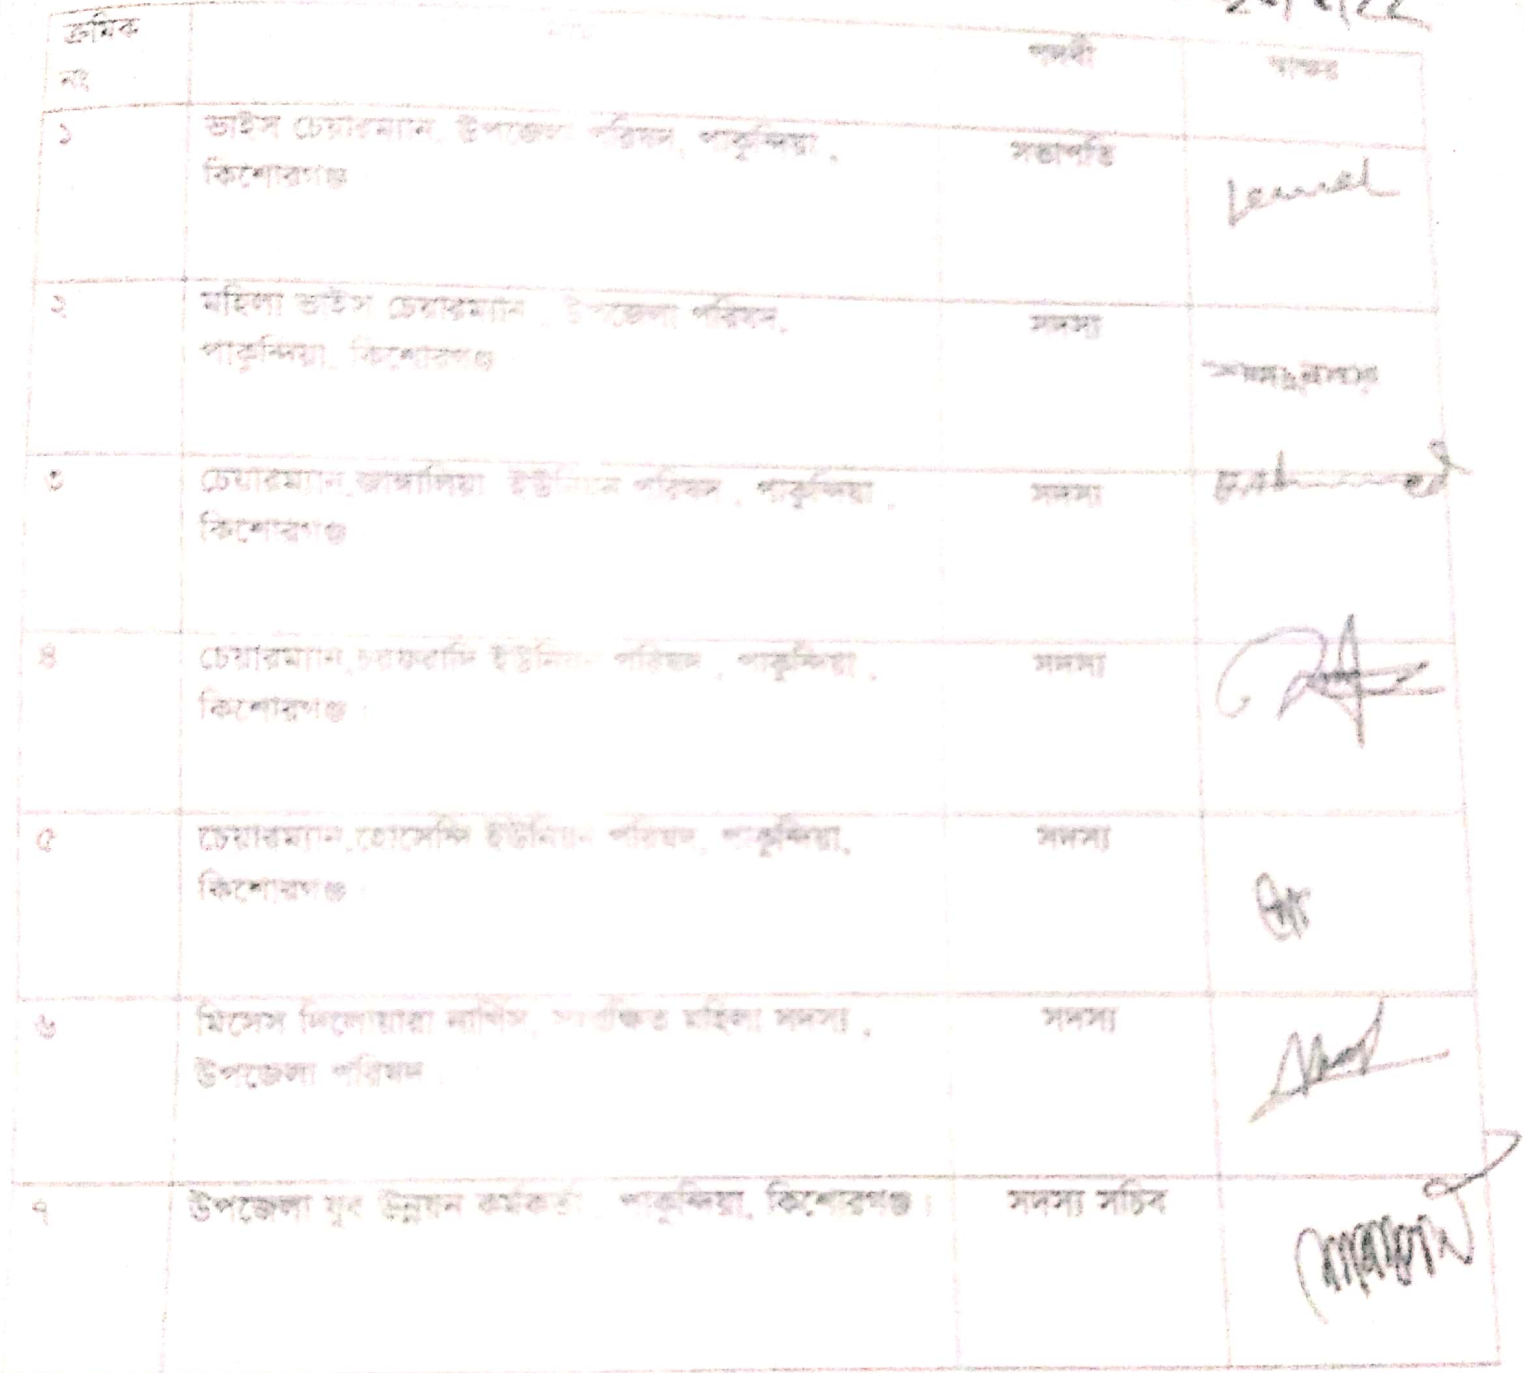 ক্রমিক
নং
নাম
পদবী
স্বাক্ষর
১
ভাইস চেয়ারম্যান, উপজেলা পরিষদ, পাকুন্দিয়া,
কিশোরগঞ্জ
সভাপতি
২
মহিলা ভাইস চেয়ারম্যান, উপজেলা পরিষদ,
পাকুন্দিয়া, কিশোরগঞ্জ
সদস্য
৩
চেয়ারম্যান,জাঙ্গালিয়া ইউনিয়ন পরিষদ, পাকুন্দিয়া,
কিশোরগঞ্জ
সদস্য
৪
চেয়ারম্যান,চরফরাদি ইউনিয়ন পরিষদ, পাকুন্দিয়া,
কিশোরগঞ্জ
সদস্য
৫
চেয়ারম্যান,হোসেন্দি ইউনিয়ন পরিষদ, পাকুন্দিয়া,
কিশোরগঞ্জ
সদস্য
৬
মিসেস দিলোয়ারা নার্গিস, সংরক্ষিত মহিলা সদস্য,
উপজেলা পরিষদ
সদস্য
৭
উপজেলা যুব উন্নয়ন কর্মকর্তা, পাকুন্দিয়া, কিশোরগঞ্জ।
সদস্য সচিব